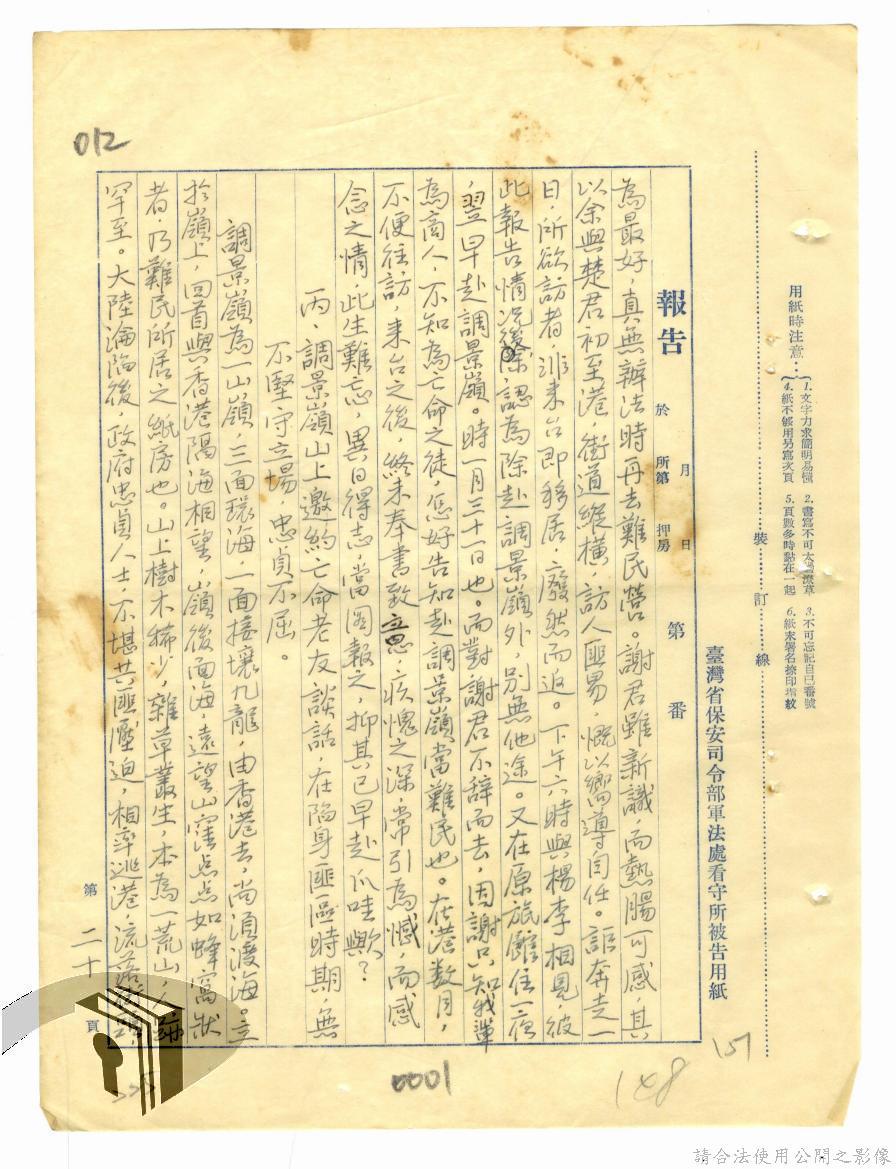 用紙時注意：
1.文字力求簡明易懂 2.書寫不可太潦草 3.不可忘記自己番號
4.紙不够用另寫次頁 5.頁數多時黏在一起 6.紙末署名捺印指紋
裝訂線
臺灣省保安司令部軍法處看守所被告用紙
報告 於 月 日 所第 押房 第 番
為最好，真無辦法時再去難民營。謝君雖新識，而熱腸可感，其
以余與楚君初至港，街道縱橫，訪人匪易，慨以嚮導自任。詎奔走一
日，所欲訪者，非來台即移居，廢然而返。下午六時與楊李相見，彼
此報告情況後，認為除赴調景嶺外，別無他途。又在原旅館住一宿
，翌早赴調景嶺。時一月三十一日也。而對謝君不辞而去，因謝只知我輩
為商人，不知為亡命之徒，怎好告知赴調景嶺當難民也。在港數月，
不便往訪，来台之後，終未奉書致意，疚愧之深，常引為憾，而感
念之情，此生難忘，異日得志，當图報之，抑其已早赴爪哇歟？
丙、調景嶺山上邀約亡命老友談話，在陷身匪區時期，無
不堅守立場，忠貞不屈。
調景嶺為一山嶺，三面環海，一面接壤九龍，由香港去，尚須渡海。立
於嶺上，回首與香港隔海相望，嶺後面海，遠望山窪点点如蜂窩狀
者，乃難民所居之紙房也。山上樹木稀少，雜草叢生，本為一荒山，人跡
罕至。大陸淪陷後，政府忠貞人士，不堪共匪壓迫，相率逃港，流落街頭，
第二十頁
012
0001
148
151
請合法使用公開之影像